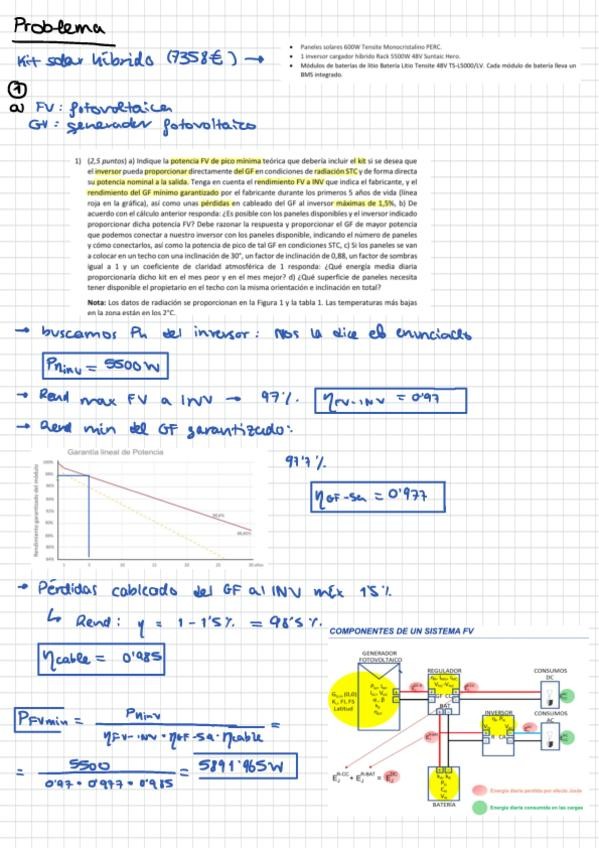 Problema
Kit solar híbrido (7358€) →
• Paneles solares 600W Tensite Monocristalino PERC.
• 1 inversor cargador híbrido Rack 5500W 48V Suntaic Hero.
• Módulos de baterías de litio Batería Litio Tensite 48V TS-L5000/LV. Cada módulo de batería lleva un
BMS integrado.
①
a) FV: fotovoltaica
GV: generador fotovoltaico
1) (2,5 puntos) a) Indique la potencia FV de pico mínima teórica que debería incluir el kit si se desea que
el inversor pueda proporcionar directamente del GF en condiciones de radiación STC y de forma directa
su potencia nominal a la salida. Tenga en cuenta el rendimiento FV a INV que indica el fabricante, y el
rendimiento del GF mínimo garantizado por el fabricante durante los primeros 5 años de vida (línea
roja en la gráfica), así como unas pérdidas en cableado del GF al inversor máximas de 1,5%, b) De
acuerdo con el cálculo anterior responda: ¿Es posible con los paneles disponibles y el inversor indicado
proporcionar dicha potencia FV? Debe razonar la respuesta y proporcionar el GF de mayor potencia
que podemos conectar a nuestro inversor con los paneles disponible, indicando el número de paneles
y cómo conectarlos, así como la potencia de pico de tal GF en condiciones STC, c) Si los paneles se van
a colocar en un techo con una inclinación de 30°, un factor de inclinación de 0,88, un factor de sombras
igual a 1 y un coeficiente de claridad atmosférica de 1 responda: ¿Qué energía media diaria
proporcionaría dicho kit en el mes peor y en el mes mejor? d) ¿Qué superficie de paneles necesita
tener disponible el propietario en el techo con la misma orientación e inclinación en total?
Nota: Los datos de radiación se proporcionan en la Figura 1 y la tabla 1. Las temperaturas más bajas
en la zona están en los 2°C.
→ buscamos Pn del inversor: Nos la dice el enunciado
Pninv = 5500W
→ Rend max FV a INV → 97%. ηFV-INV = 0'97
→ Rend min del GF garantizado:
Garantía lineal de Potencia
Rendimiento garantizado del módulo
97'7%.
ηGF-5a = 0'977
→ Pérdidas cableado del GF al INV máx 1'5%
↳ Rend: η = 1 - 1'5%. = 98'5%.
ηcable = 0'985
PFVmin = Pninv / ηFV-INV · ηGF-5a · ηcable =
= 5500 / 0'97 · 0'977 · 0'985 = 5891'965W
COMPONENTES DE UN SISTEMA FV
GENERADOR
FOTOVOLTAICO
REGULADOR
CONSUMOS
DC
GF CC
BAT
INVERSOR
CONSUMOS
AC
B CA
BATERÍA
Energía diaria perdida por efecto Joule
Energía diaria consumida en las cargas